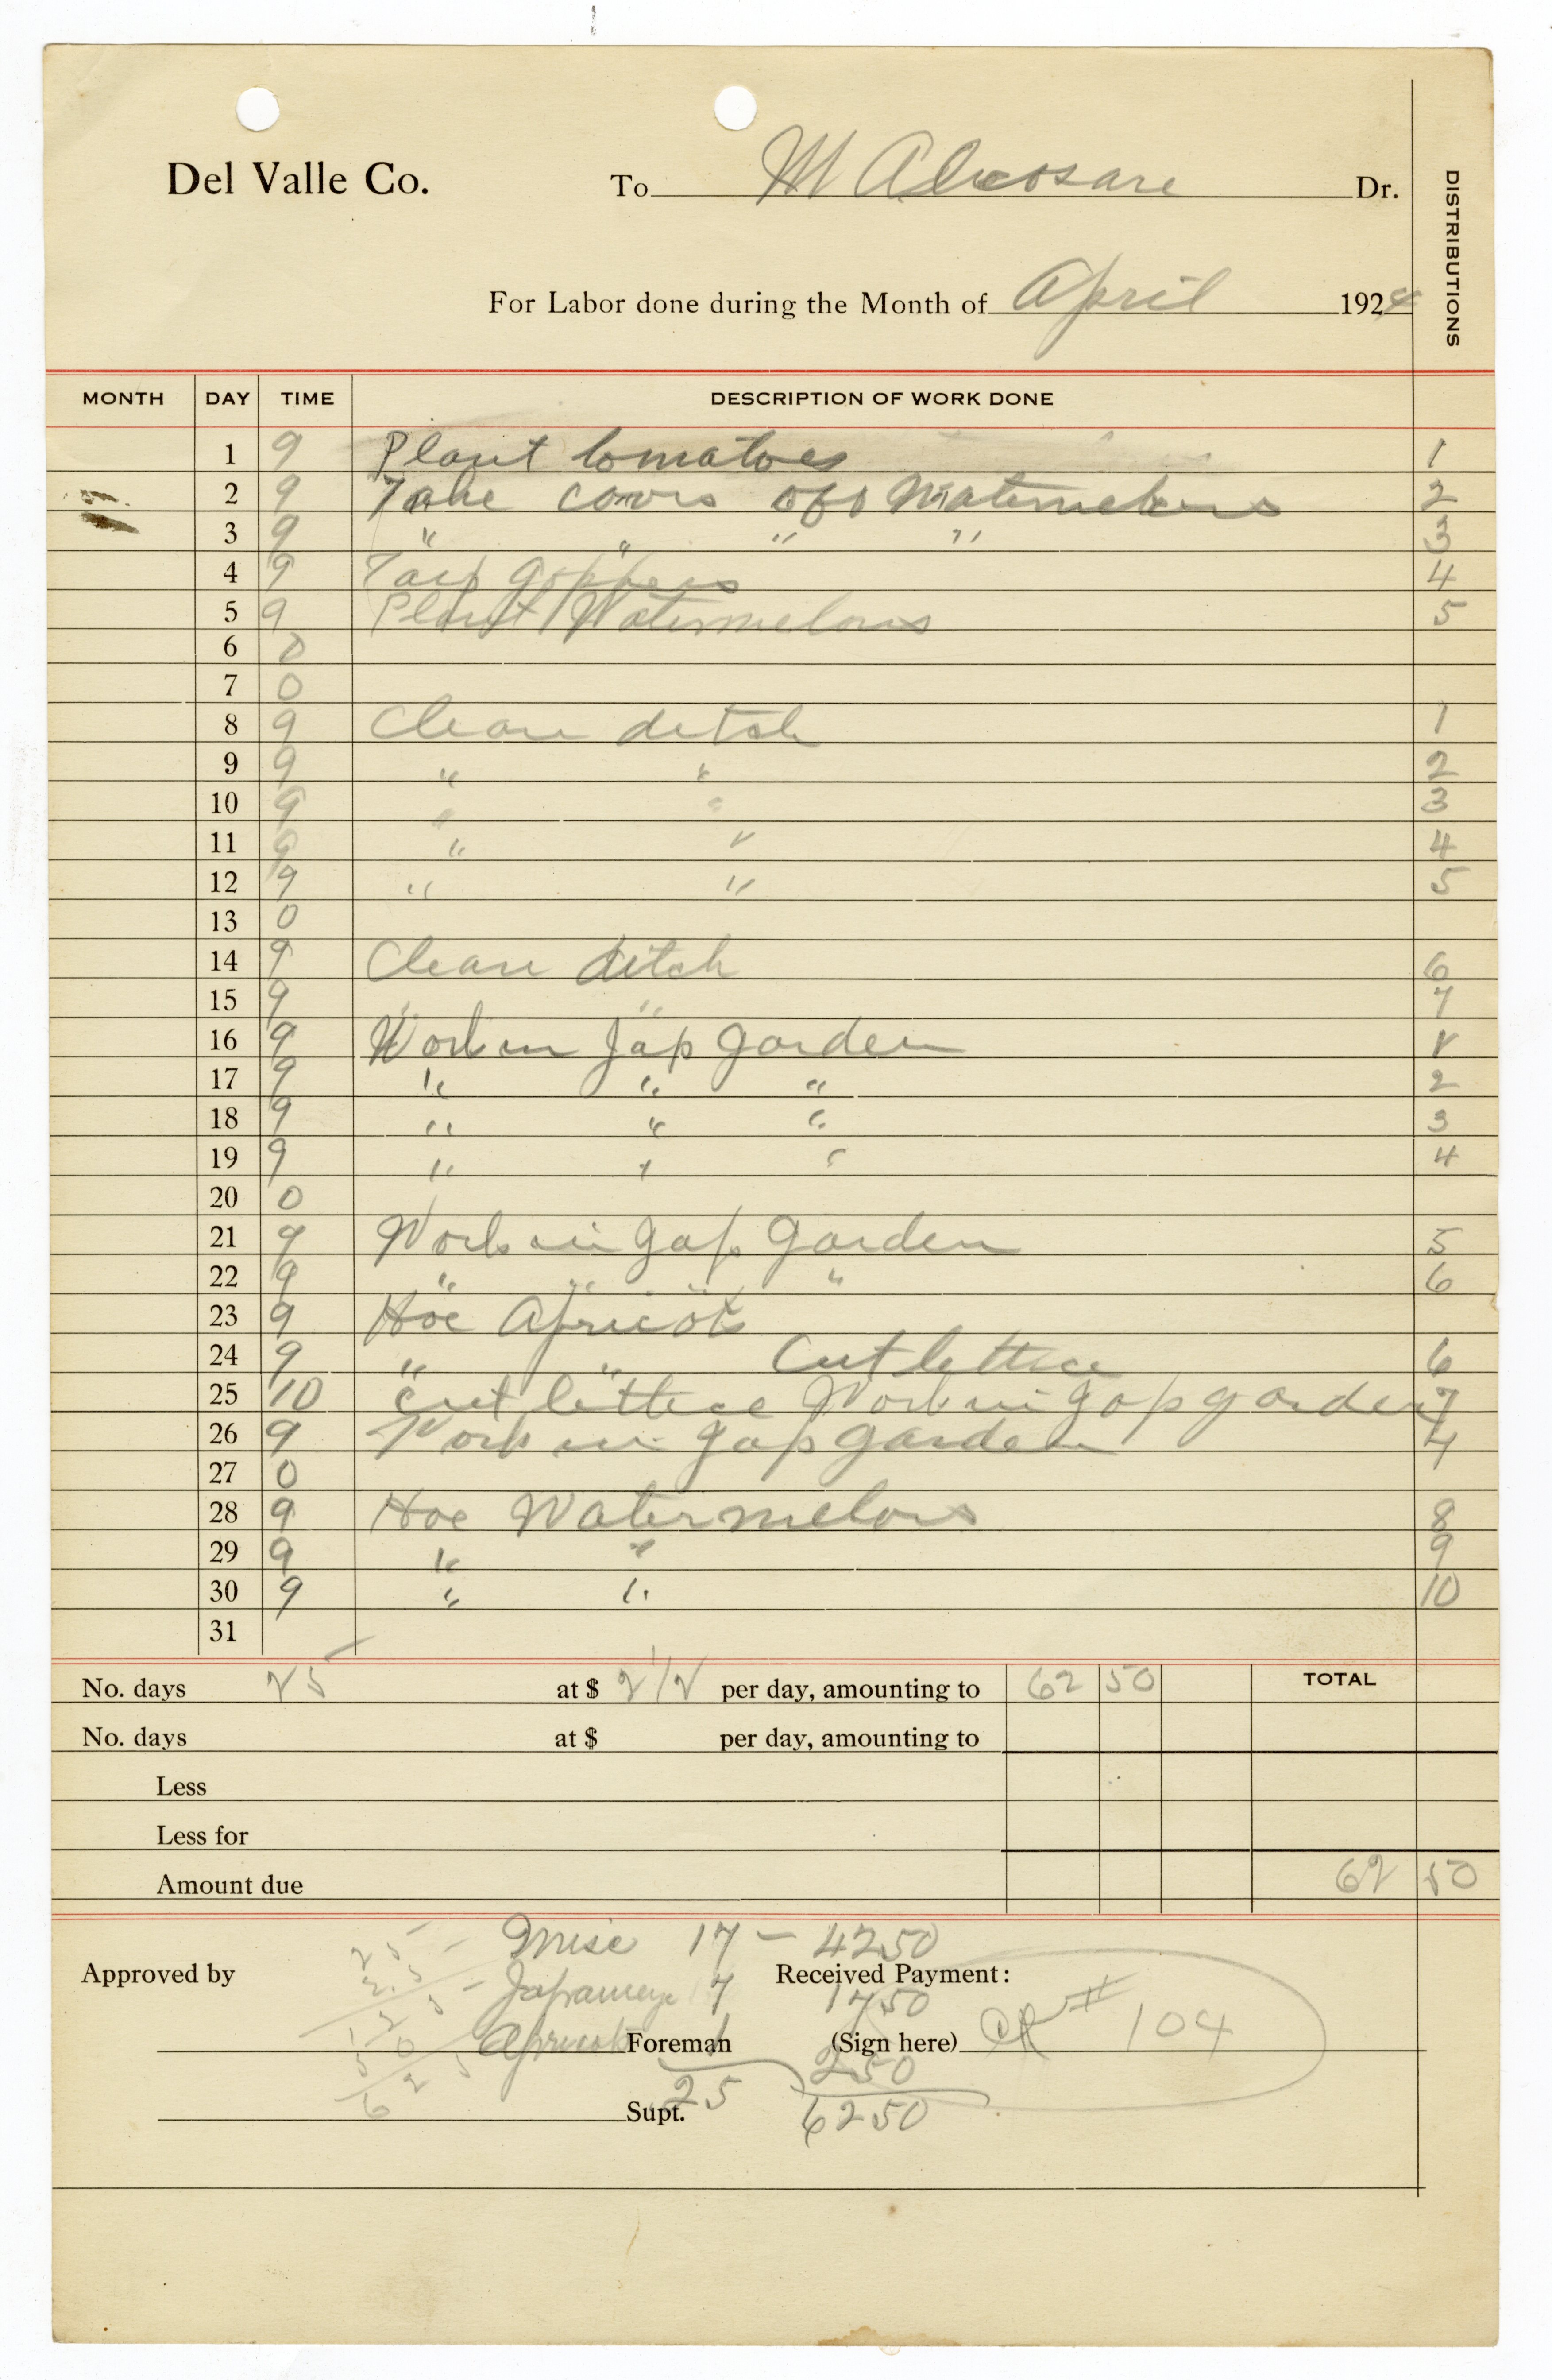 Del Valle Co. To M Dr.
DISTRIBUTIONS
For Labor done during the Month of April 1924
MONTH DAY TIME DESCRIPTION OF WORK DONE
1 9 Plant tomatoes 1
2 9 Take off Watermelons 2
3 9 " " " " 3
4 9 4
5 9 Plant Watermelons 5
6 0
7 0
8 9 Clean ditch 1
9 9 " " 2
10 9 " " 3
11 9 " " 4
12 9 " " 5
13 0
14 9 Clean ditch 6
15 9 " " 7
16 9 Work in Jap garden 1
17 9 " " " 2
18 9 " " " 3
19 9 " " " 4
20 0
21 9 Work in Jap Garden 5
22 9 " " " 6
23 9 Hoe Apricots
24 9 " " Cut lettice 6
25 10 cut lettice Work in Jap garden 7
26 9 Work in Jap garden 4
27 0
28 9 Hoe Watermelons 8
29 9 " " 9
30 9 " " 10
31
No. days 25 at $ 2 1/2 per day, amounting to 62 50 TOTAL
No. days at $ per day, amounting to
Less
Less for
Amount due 62 50
Misc 17 - 4250
Approved by Received Payment:
7 1750
Apricot Foreman 1 (Sign here) # 104
250
Supt. 25 6250